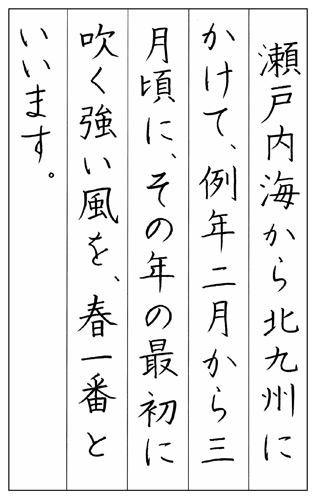 瀬戸内海から北九州に
かけて、例年二月から三
月頃に、その年の最初に
吹く強い風を、春一番と
いいます。